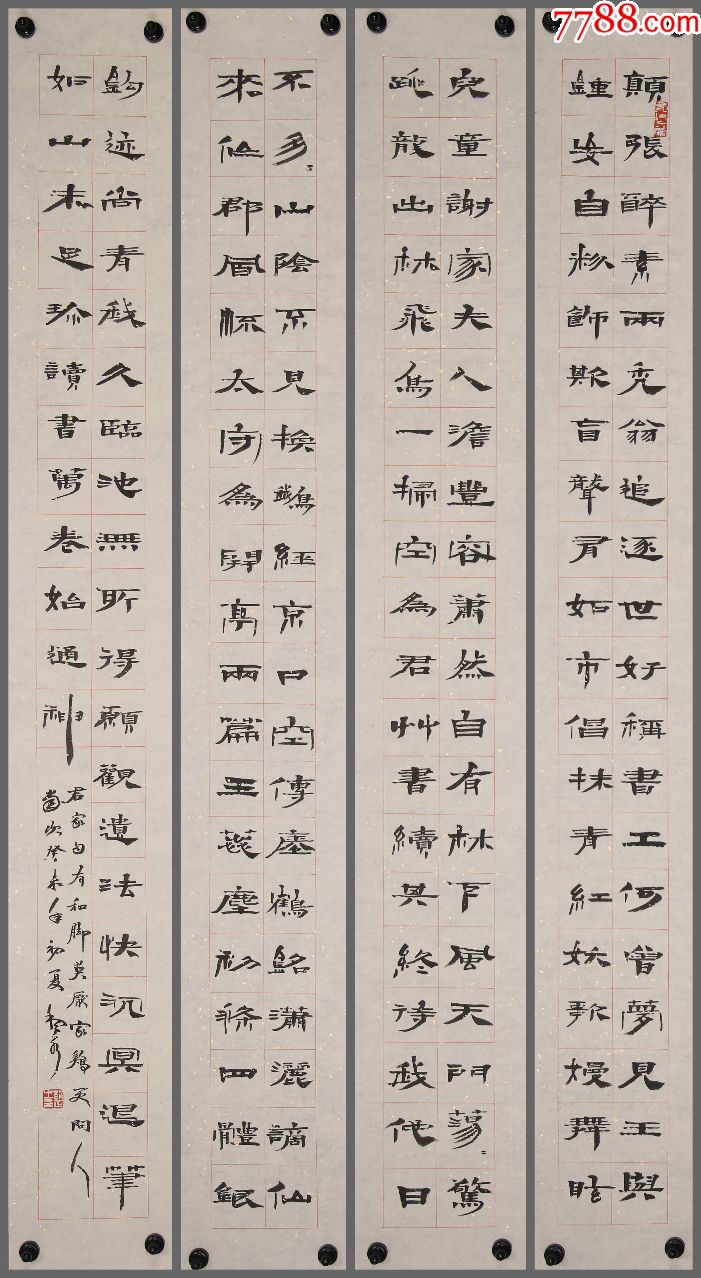 7788.com
顛張醉素兩禿翁追逐世好稱書工何曾夢見王與
鍾妄自粉飾欺盲聾有如市倡抹青紅妖歌嫚舞眩
兒童謝家夫人澹豐容蕭然自有林下風天門蕩〻驚
跳龍出林飛鳥一掃空為君艸書續其終待我他日
不匆〻山陰不見換鵝經京口空傳瘞鶴銘瀟灑謫仙
來作郡風流太守為開亭兩篇玉蕊塵初滌四體銀
鈎迹尚青我久臨池無所得願觀遺法快沉冥退筆
如山未足珍讀書萬卷始通神
君家自有和脚莫厭家鷄更問人
歲次癸未年初夏